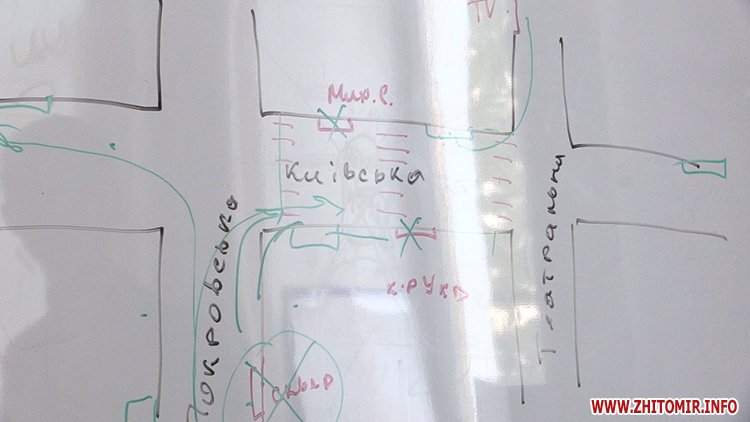 TV
Мир. С.
Київська
Покровська
Театральна
к. рукд
WWW.ZHITOMIR.INFO